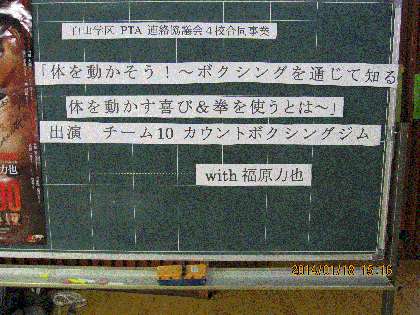 白山学区 PTA 連絡協議会4校合同事業
「体を動かそう！～ボクシングを通じて知る
体を動かす喜び＆拳を使うとは～」
出演　チーム10 カウントボクシングジム
with 福原力也
2014/01/18 15:16